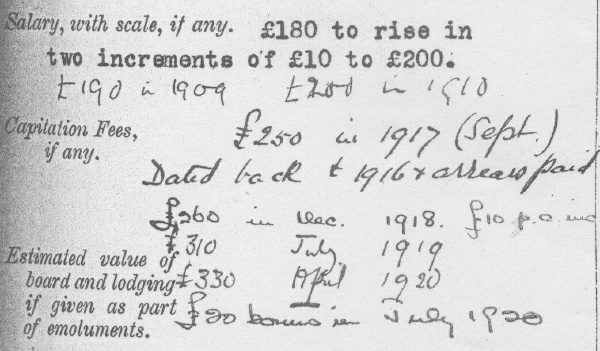 Salary, with scale, if any. £180 to rise in
two increments of £10 to £200.
£190 in 1909 £200 in 1910
Capitation Fees,
if any.
£250 in 1917 (Sept.)
Dated back to 1916 & arrears paid
£260 in Dec. 1918. £10 p.a. inc
£310 July 1919
Estimated value of
board and lodging
if given as part
of emoluments.
£330 April 1920
£20 bonus in July 1920